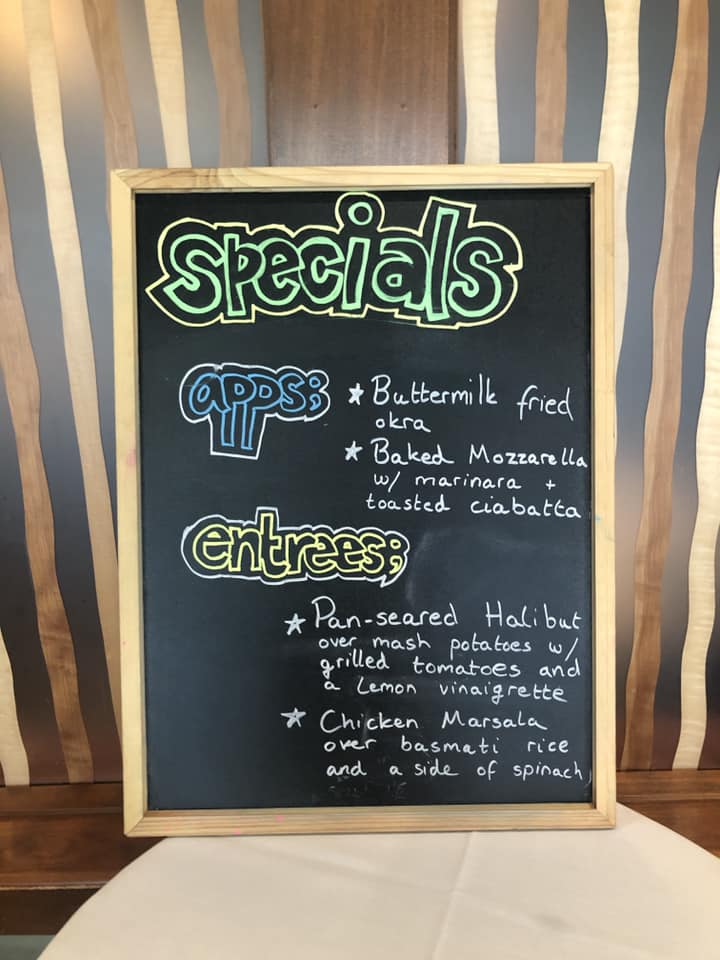 specials
apps;
★ Buttermilk fried
okra
★ Baked Mozzarella
w/ marinara +
toasted ciabatta
entrees;
★ Pan-seared Halibut
over mash potatoes w/
grilled tomatoes and
a Lemon vinaigrette
★ Chicken Marsala
over basmati rice
and a side of spinach